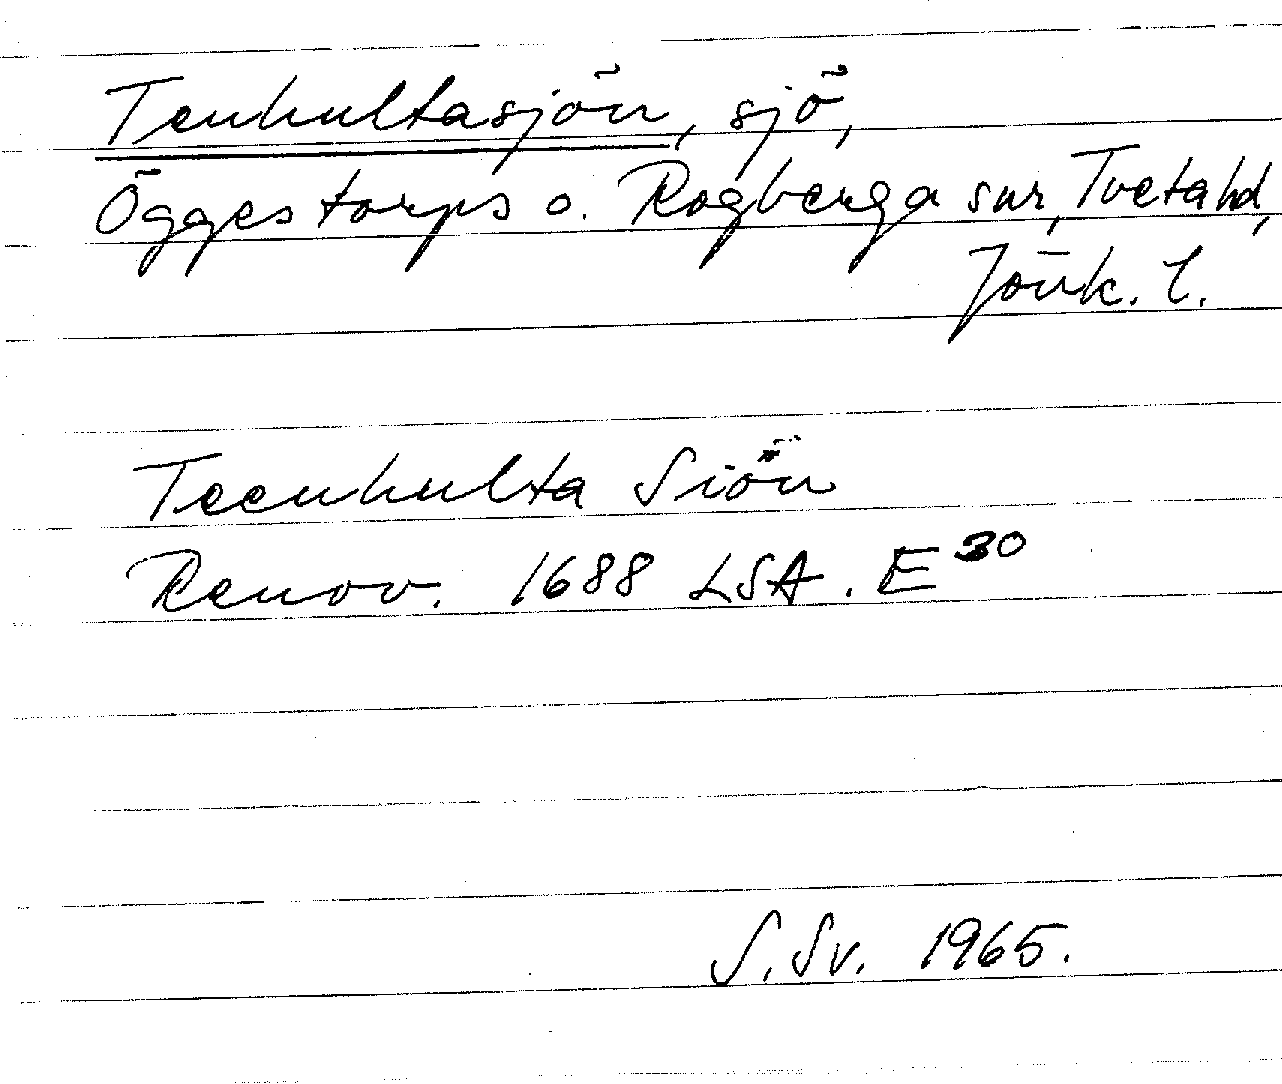 Tenhultasjön, sjö,
Öggestorps o. Rogberga snr, Tveta hd,
Jönk. l.
Teenhulta Siön
Renov. 1688 LSA. E 30
S. Sv. 1965.